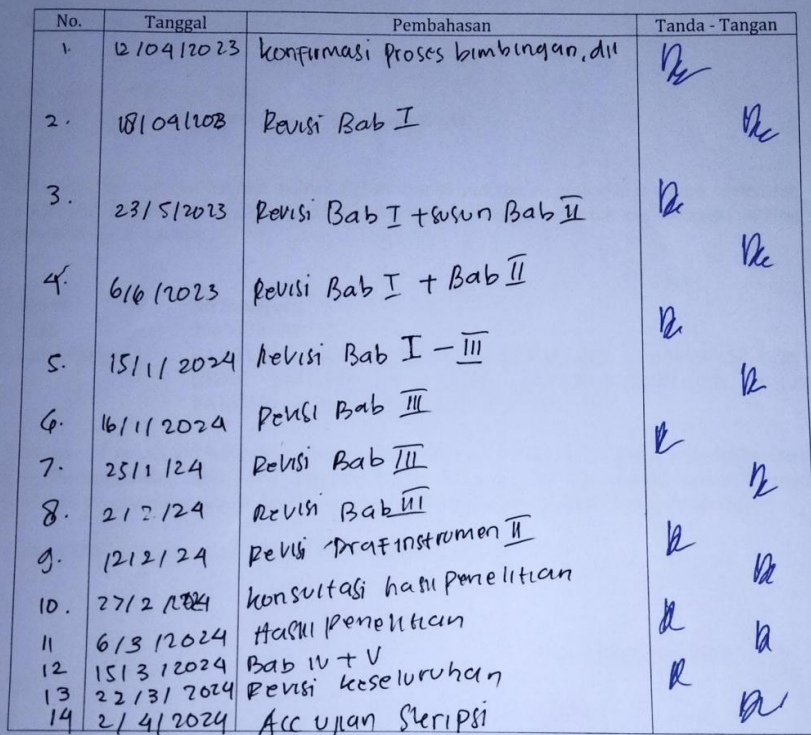 No. Tanggal Pembahasan Tanda - Tangan
1. 12/04/2023 konfirmasi proses bimbingan, dll
2. 18/04/203 Revisi Bab I
3. 23/5/2023 Revisi Bab I + susun Bab II
4. 6/6/2023 Revisi Bab I + Bab II
5. 15/1/2024 Revisi Bab I - III
6. 16/1/2024 Revisi Bab III
7. 25/1/24 Revisi Bab III
8. 2/2/24 Revisi Bab III
9. 12/2/24 Revisi Draf instrumen II
10. 27/2/2024 konsultasi hasil penelitian
11 6/3/2024 Hasil penelitian
12 15/3/2024 Bab IV + V
13 22/3/2024 Revisi keseluruhan
14 2/4/2024 Acc ujian Skripsi